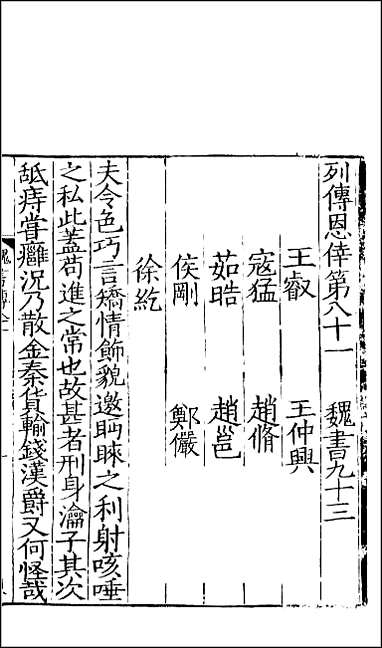 列傳恩倖第八十一 魏書九十三
王叡 王仲興
寇猛 趙脩
茹皓 趙邕
侯剛 鄭儼
徐紇
夫令色巧言矯情飾貌邀眄睞之利射咳唾
之私此蓋苟進之常也故甚者刑身瀹子其次
舐痔嘗癰況乃散金秦貨輸錢漢爵又何怪哉